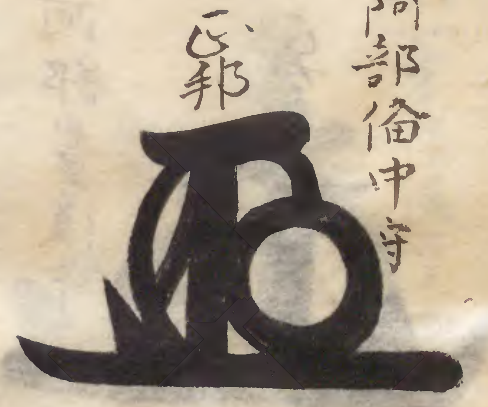 阿部備中守
正邦